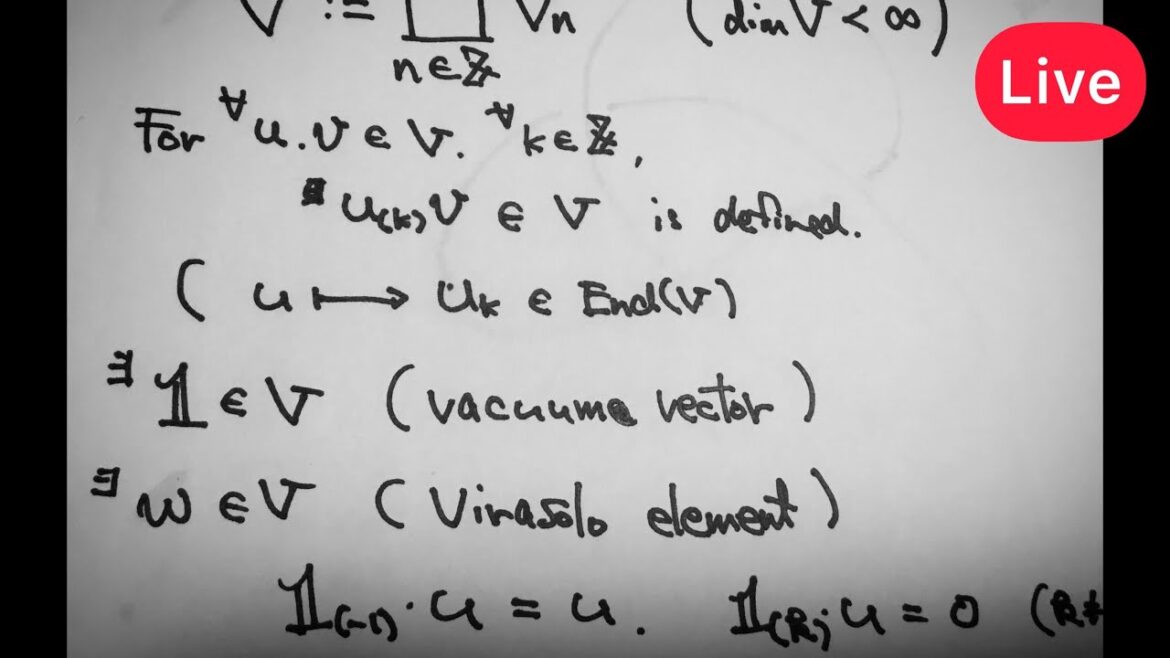 V := ∐ Vn (dim V < ∞)
n∈ℤ
Live
For ∀u.v ∈ V. ∀k∈ℤ,
u(k)v ∈ V is defined.
( u ⟼ uk ∈ End(V)
∃𝟙 ∈ V (vacuume vector)
∃w ∈ V (Virasolo element)
𝟙(-1)·u = u. 𝟙(k);u = 0 (k≠